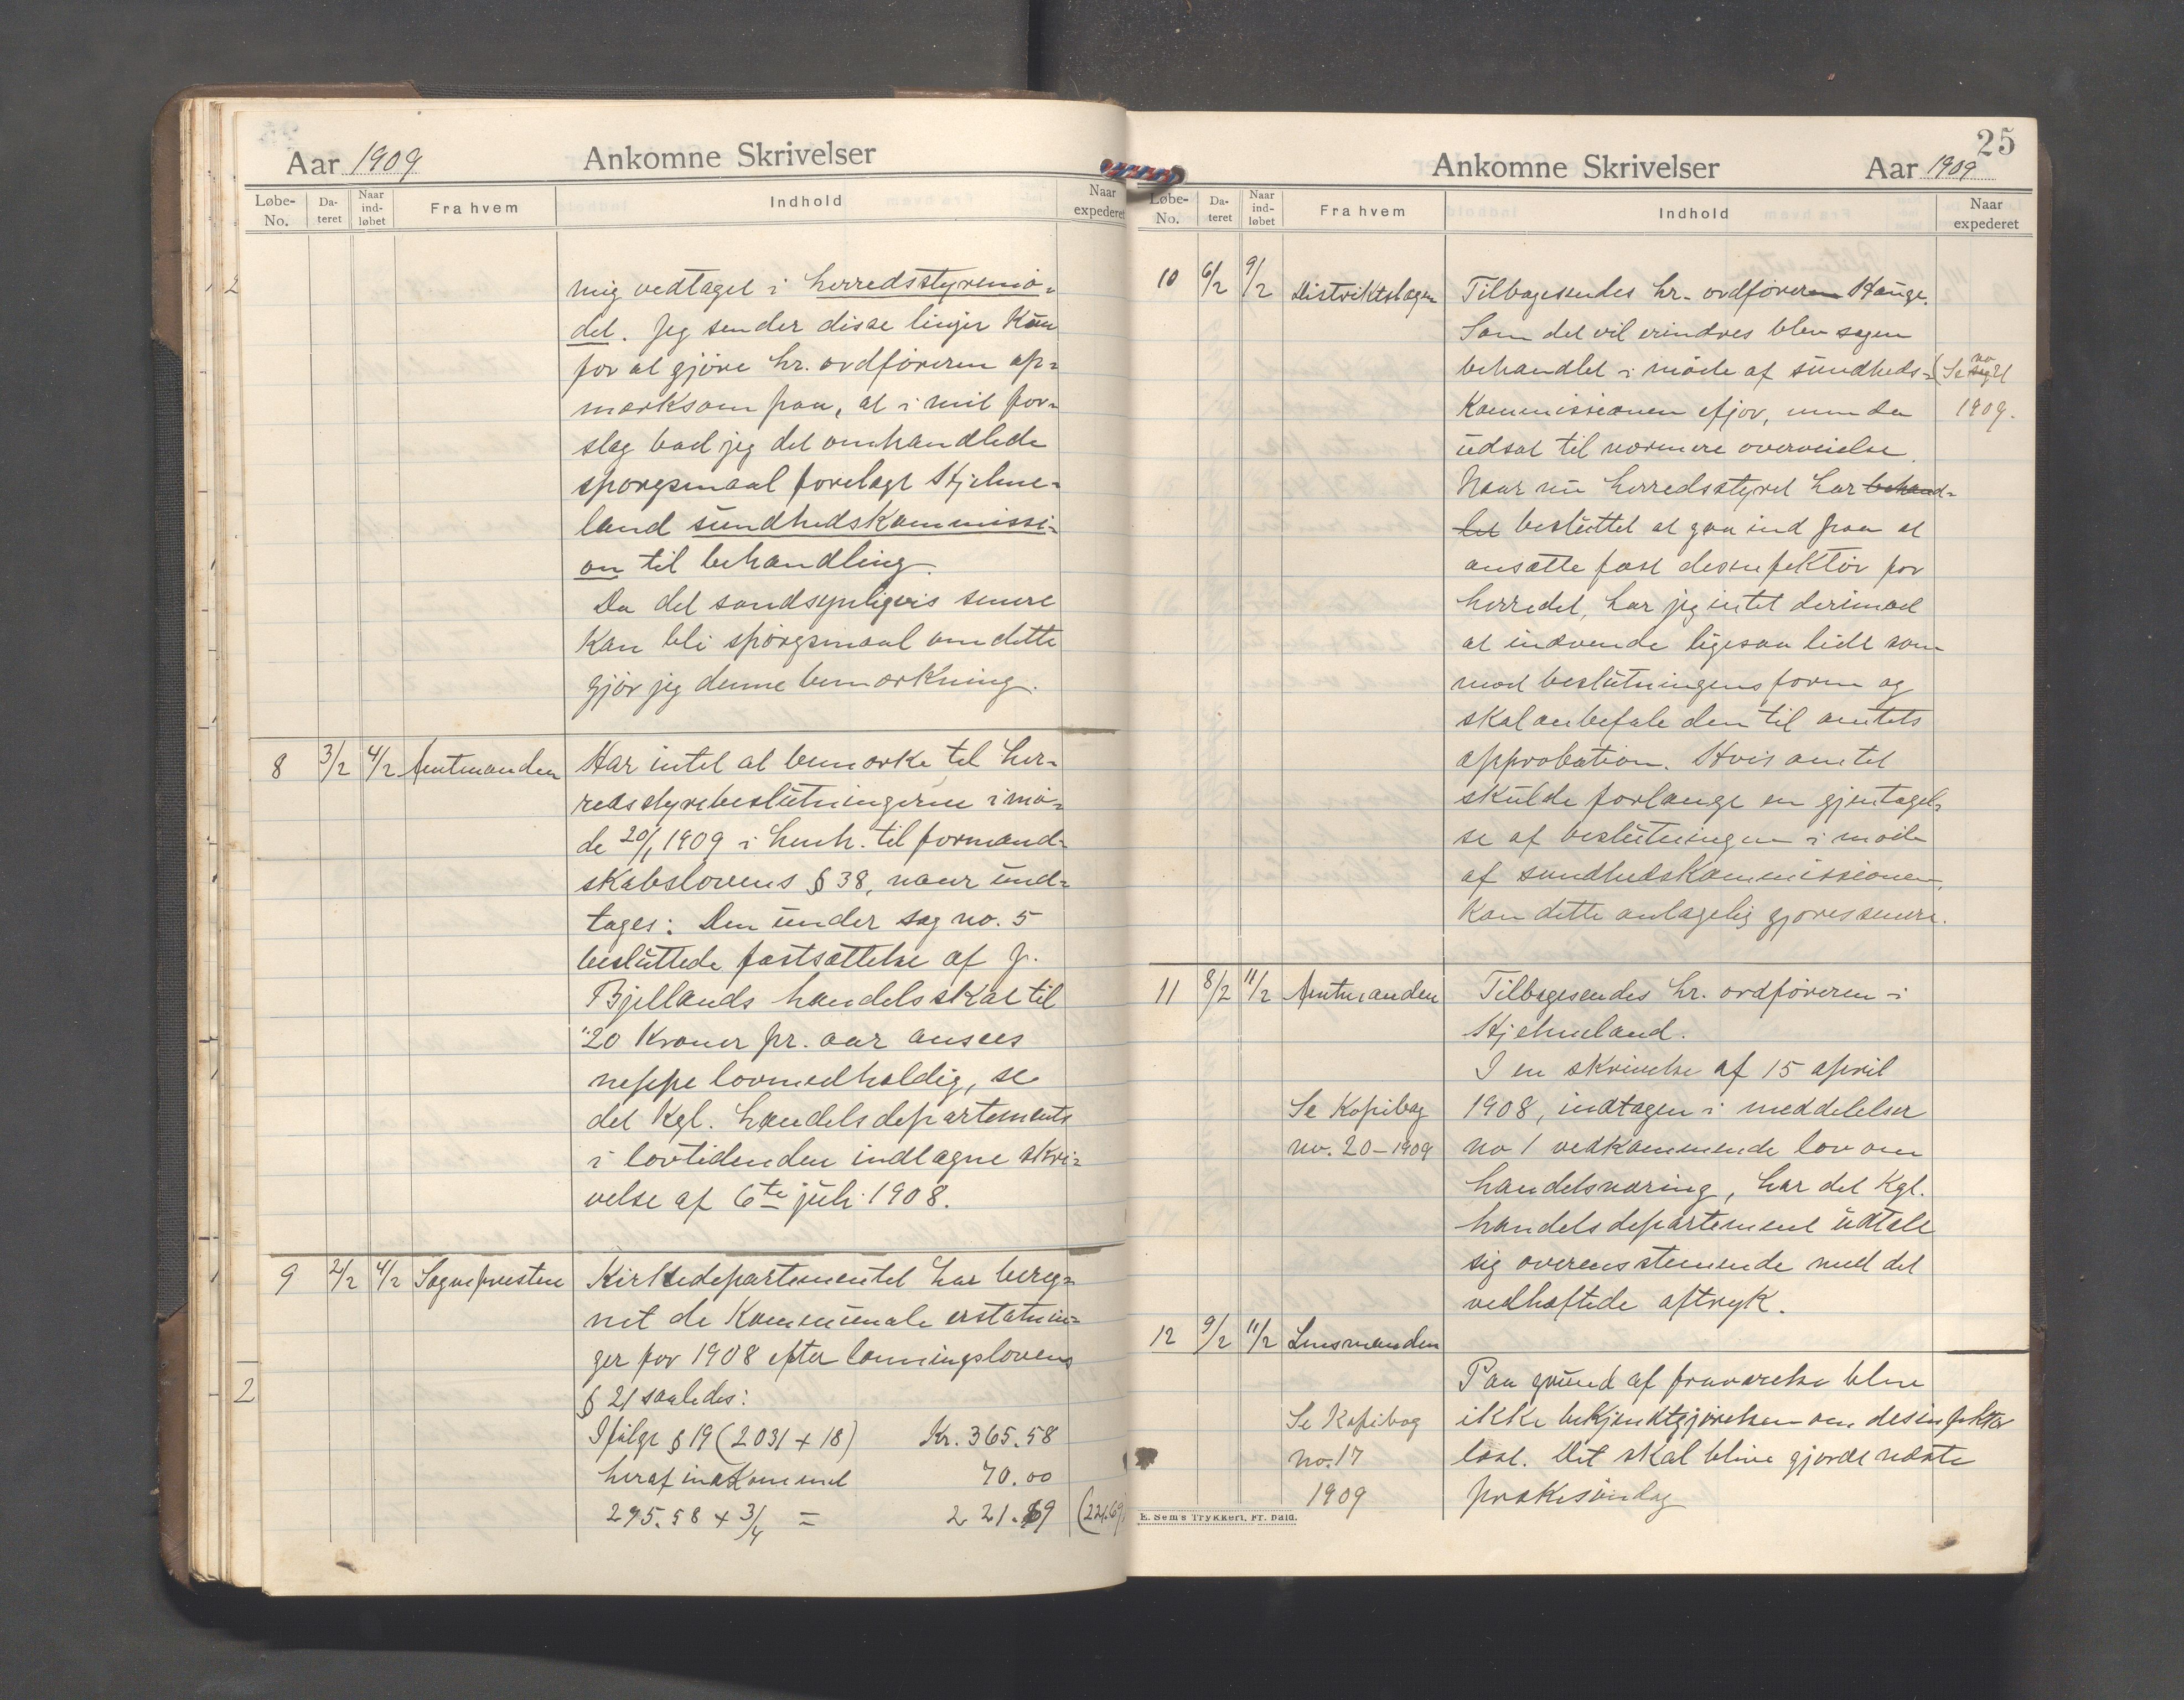 Aar 1909
Ankomne Skrivelser
Løbe-No.
Da-teret
Naar ind-løbet
Fra hvem
Indhold
Naar expederet
mig vedtaget i herredsstyremø-
det. Jeg sender disse linjer kun
for at gjøre hr. ordføreren op-
mærksom paa, at i mit for-
slag bad jeg det omhandlede
spørgsmaal forelagt Hjelme-
land sundhedskommissi-
on til behandling.
Da det sandsynligvis senere
kan bli spørgsmaal om dette
gjør jeg denne bemærkning.
8 3/2 4/2 Amtmanden Har intet at bemærke til her-
redsstyrebeslutningerne i mø-
de 20/1 1909 i henh. til formand-
skabslovens § 38, naar und-
tages: Den under sag no. 5
besluttede fastsættelse af J.
Bjellands handelsskat til
20 kroner pr. aar ansees
neppe lovmedholdig, se
det kgl. handelsdepartements
i lovtidenden indtagne skri-
velse af 6te juli 1908.
9 2/2 4/2 Sognepresten Kirkedepartementet har bereg-
net de kommunale erstatnin-
ger for 1908 efter lønningslovens
§ 21 saaledes:
Ifølge § 19 (2031 + 18) Kr. 365.58
heraf indkommet 70.00
295.58 + 3/4 = 221.69 (221.69)
2
2
25
Ankomne Skrivelser
Aar 1909
Løbe-No.
Da-teret
Naar ind-løbet
Fra hvem
Indhold
Naar expederet
10 6/2 9/2 Distriktslægen Tilbagesendes hr. ordføreren Hauge.
Som det vil erindres blev sagen
behandlet i møde af sundheds- (Se no 21
kommissionen ifjor, men da 1909.
udsat til nærmere overveielse.
Naar nu herredsstyret har behand-
let besluttet at gaa ind paa at
ansætte fast desinfektør for
herredet, har jeg intet derimod
at indvende ligesaa lidt som
mod beslutningens form og
skal anbefale den til amtets
approbation. Hvis amtet
skulde forlange en gjentagel-
se af beslutningen i møde
af sundhedskommissionen,
kan dette antagelig gjøres senere.
11 8/2 11/2 Amtmanden Tilbagesendes hr. ordføreren i
Hjelmeland.
I en skrivelse af 15 april
Se Kopibog 1908, indtagen i meddelelser
no. 20-1909 no 1 vedkommende lov om
handelsnæring, har det kgl.
handelsdepartement udtalt
sig overensstemende med det
vedhæftede aftryk.
12 9/2 11/2 Lensmanden
Paa grund af fraværelse blev
Se Kopibog ikke bekjendtgjørelsen om desinfektør
no. 17 læst. Det skal blive gjordt næste
1909 prækesøndag
E. Sem's Trykkeri, Fr. hald.